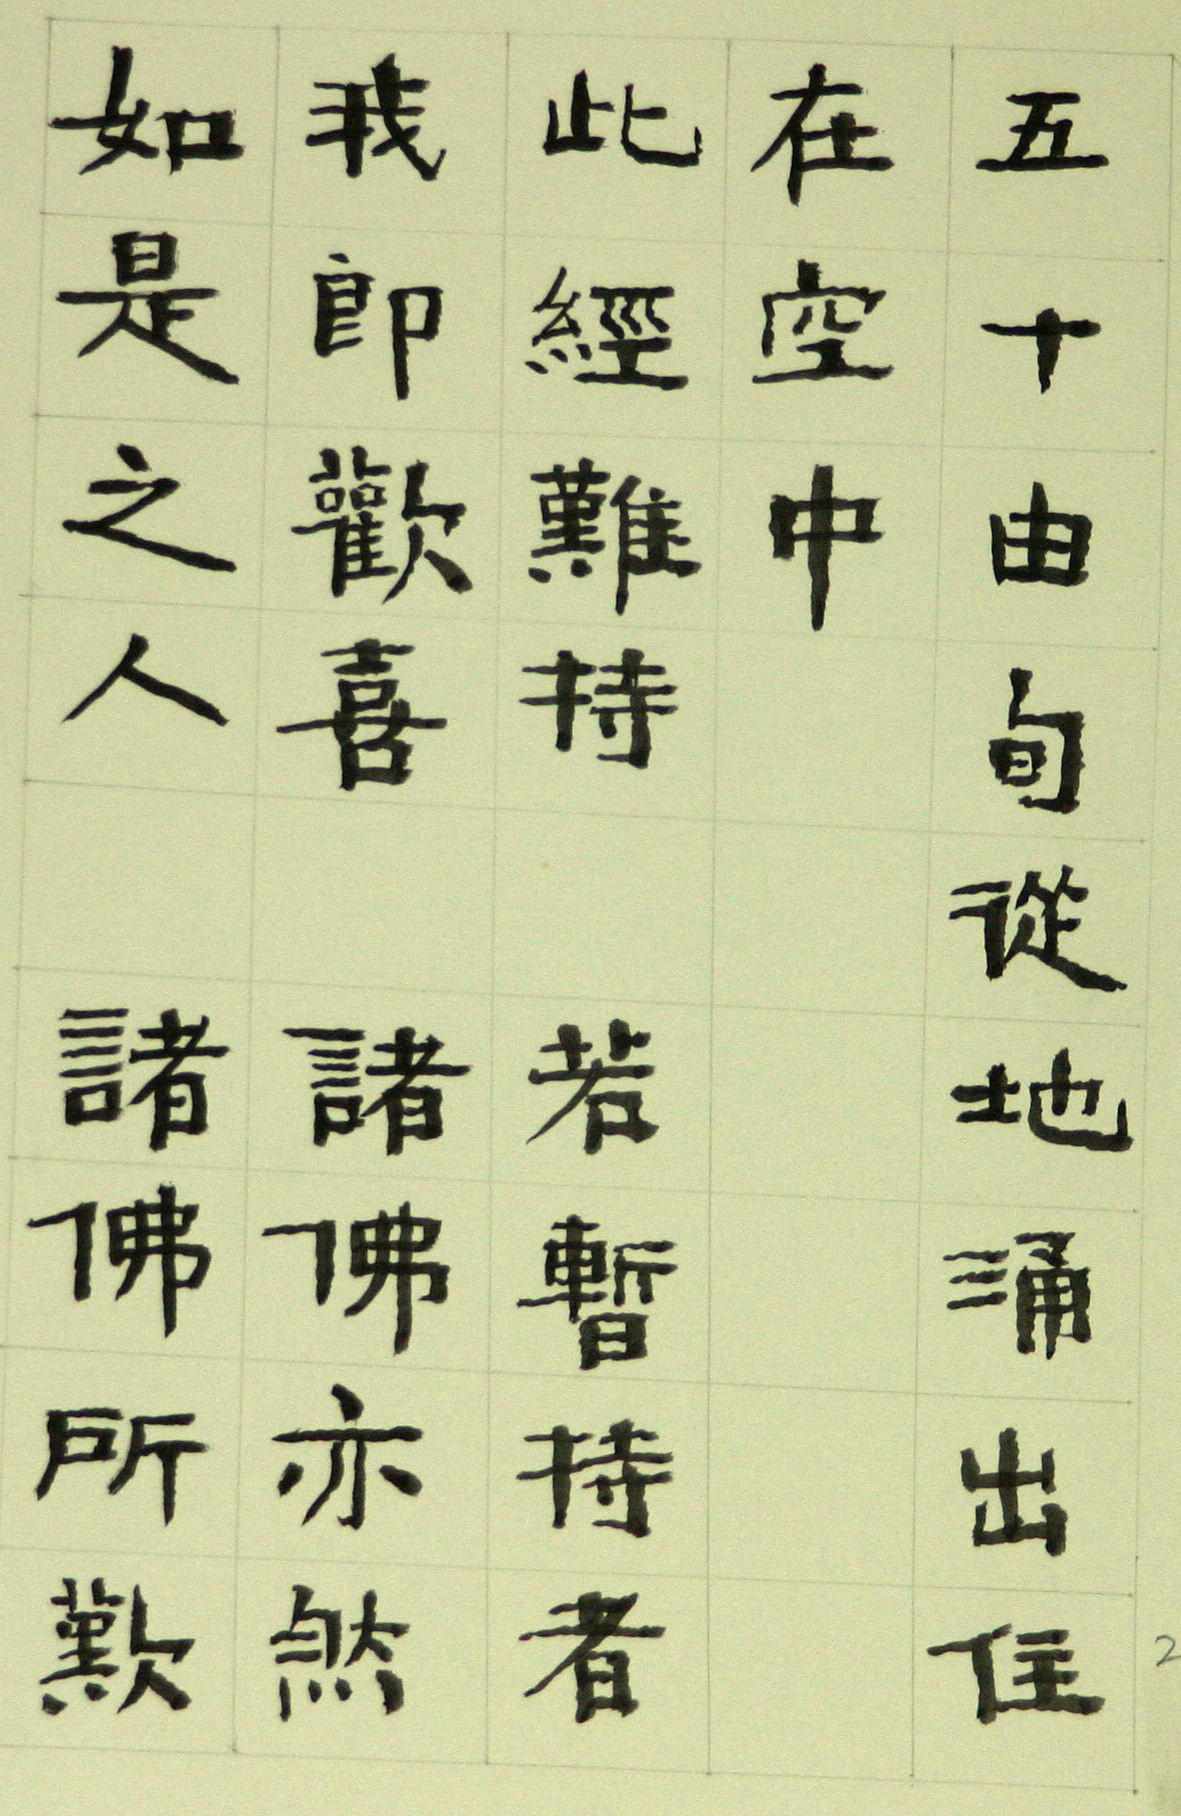 五十由旬從地涌出住
在空中
此經難持 若暫持者
我即歡喜 諸佛亦然
如是之人 諸佛所歎
2